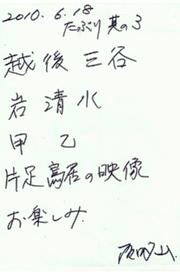 2010.6.18
たぶり 其の3
越後三谷
岩清水
甲乙
片足鳥居の映像
お楽しみ